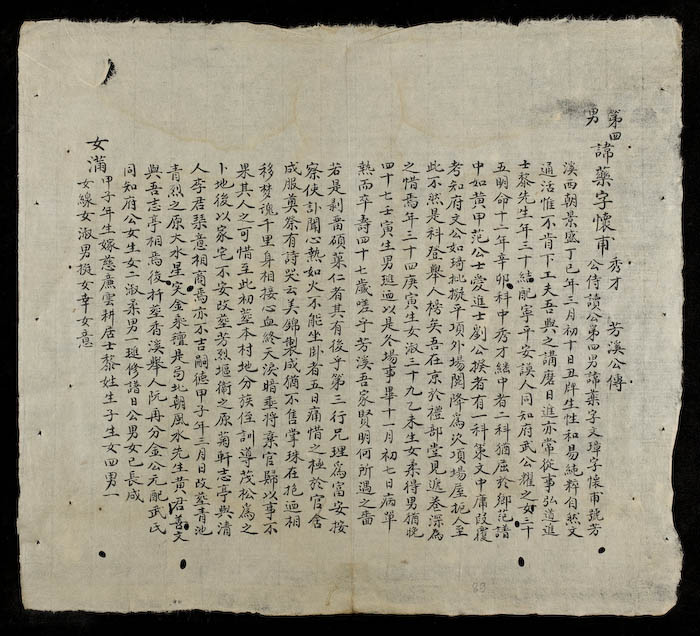 第四男 諱藥字懷甫 秀才 芳溪公傳
公侍讀公第四男諱藥字文璋字懷甫號芳
溪西朝景盛丁巳年三月初十日丑牌生性和易純粹自然文
通活惟不肯下工夫吾與之講磨日進亦常從事弘道進
士黎先生年三十結配寧平安謨人同知府武公耀之女三十
五明命十二年辛卯科中秀才繼中者二科猶屈於鄉范譜
中如黃甲范公士愛進士劉公揆者有一科東文中庸段覆
考知府文公如琦批擬平項外場閱降為次項場屋扼人至
此不然是科登舉人榜矣吾在京於禮部堂見遞卷深為
之惜焉年三十四庚寅生女淑三十九乙未生女柔待男猶晚
四十七壬寅生男珽迺以是冬場事畢十一月初七日病單
熱而卒壽四十七歲嗟乎芳溪吾家賢明何所遇之嗇
若是剥嗇碩菓仁者其有後乎第三行兄理為富安按
察使訃聞心熱如火不能坐臥者五日痛惜之極於官舍
成服奠祭有詩哭云美錦製成猶不售掌珠在抱遽相
移梦魂千里身相接心血終天淚暗垂將棄官歸以事不
果其人之可惜至此初葬本村地分族住訓導茂松為之
卜地後以家宅不安改葬芳烈堰衙之原菊軒志亭與清
人李君琹意相商焉亦不吉嗣德甲子年三月日改葬青池
青烈之原大水星突金乘穜是局北朝風水先生黃君善文
與吾志亭相焉後扦葬香溪舉人阮再分金公元配武氏
同知府公女生女二淑柔男一珽修譜日公男女已長成
女滿 甲子年生嫁慈廉雲耕居士黎姓生子生女四男一
女線女淑男挺女幸女意
83